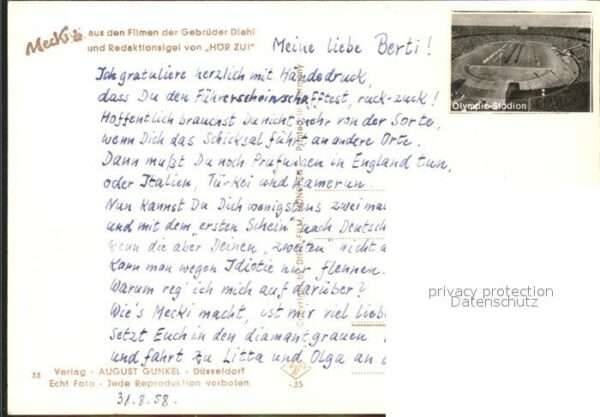 Mecki aus den Filmen der Gebrüder Diehl
und Redaktionsigel von „HÖR ZU!"
Meine liebe Berti!
Ich gratuliere herzlich mit Händedruck,
dass Du den Führerschein schafftest, ruck-zuck!
Hoffentlich brauchst Du nicht mehr von der Sorte,
wenn Dich das Schicksal führt an andere Orte.
Dann mußt Du noch Prüfungen in England tun,
oder Italien, Türkei und Kamerun.
Nun kannst Du Dich wenigstens zwei ma
und mit dem „ersten Schein" nach Deutsch
wenn die aber Deinen „zweiten" nicht
Kann man wegen Idiotie nur flennen.
Warum reg' ich mich auf darüber?
Wie's Mecki macht, ist mir viel lieb
Setzt Euch in den diamantgrauen
und fahrt zu Litta und Olga an
31.8.58.
38 Verlag - AUGUST GUNKEL - Düsseldorf
Echt Foto - Jede Reproduktion verboten
35
Olympia-Stadion
privacy protection
Datenschutz